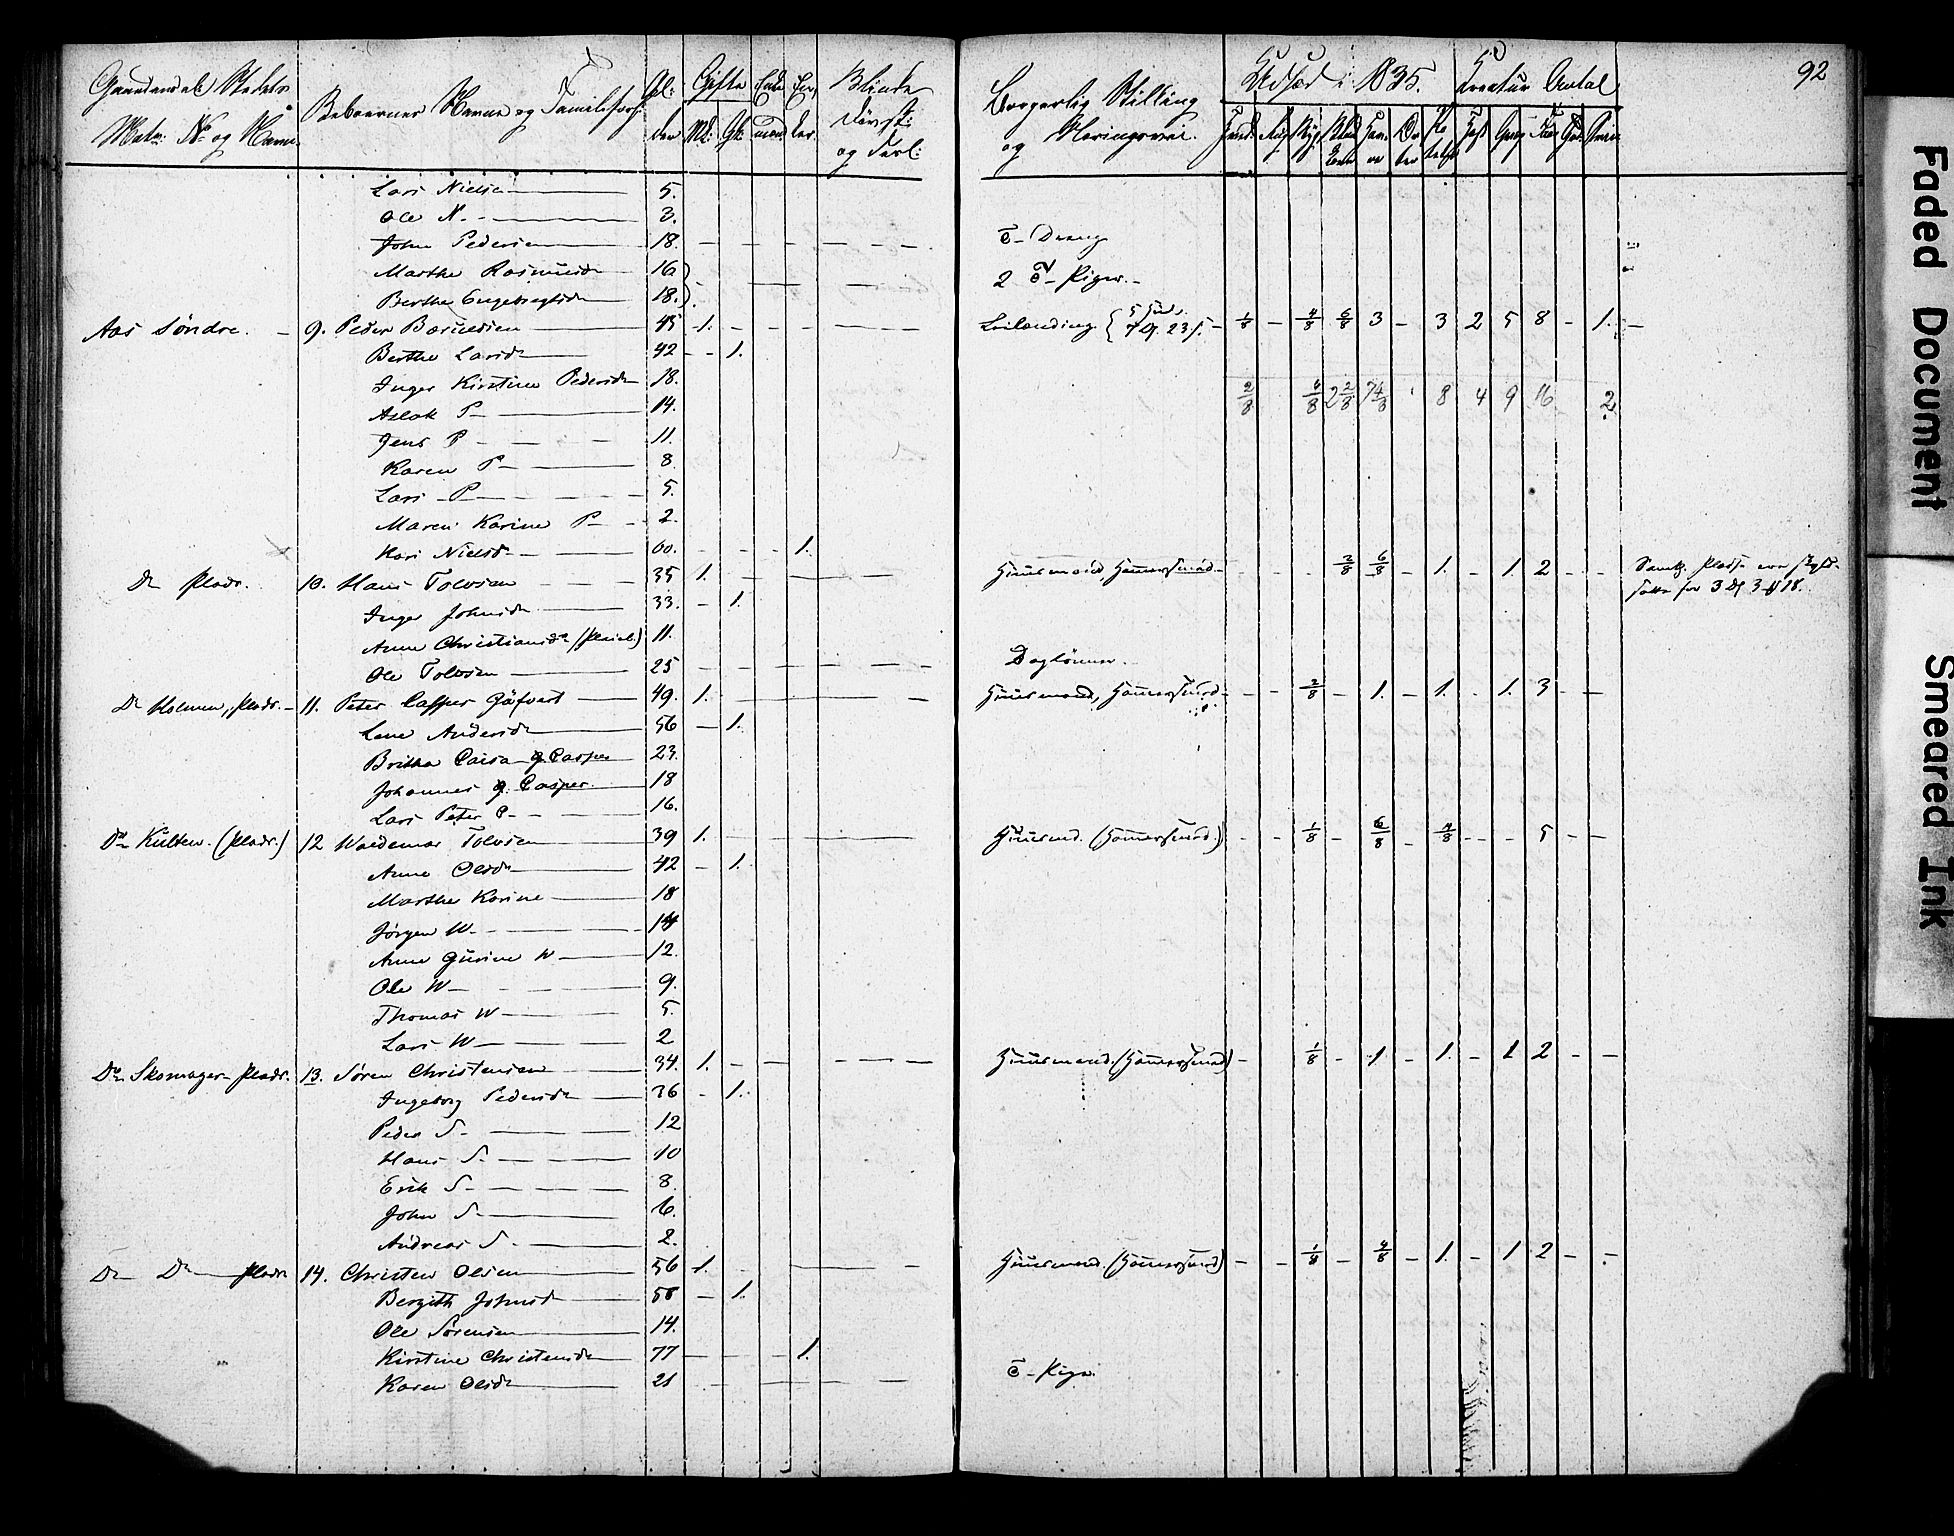 Gaardens eller Stedets
Matr: No og Navn.
Beboernes Navne og Familieforh:
Al:
der
Gifte
Md:
Qk:
Enke
mænd.
En,
ker.
Blinde
Døvst:
og
Borgerlig Stilling
og Næringsvei.
Udsæd i 1835.
Kreatur Antal
92
Lars Nielsen 5.
Ole N. - 3.
John Pedersen 18. T- Dreng
Marthe Rasmusdr 16 2 T- Piger.
Berthe Engebregtsdr 18.
Aas Søndre. 9. Peder Barnelsen 45 1. Leilænding 1/8 4/8 6/8 3 - 3 2 5 8 - 1.
Berthe Larsdr 42 1.
Inger Kirstine Pedersdr 18.
2/8 6/8 2 2/8 7 4/8 8 4 9 16 2
Aslak P 14.
Jens P 11.
Karen P 8
Lars P 5.
Maren Karine P 2.
Kari Nielsdr 60. 1.
Do Plads. 10. Hans Tolvsen 35 1. Huusmand, Hammersmed 2/8 6/8 - 1. - 1. 2
for 3 D 3 ß 18.
Inger Johnsdr 33. 1.
Anne Christiansdr (Pleiel.) 11.
Ole Tolvsen 25 Daglønner.
Do Holmen, Plads. 11. Peter Casper Göfvert 49. 1. Huusmand, Hammersmed 2/8 - 1. - 1. - 1. 3
Lene Andersdr 56 1.
Britha Caisa Casper 23.
Johannes Casper 18
Lars Peter C 16.
Do Kulten. (Plads.) 12 Woldemar Tolvsen 39 1. Huusmd. (Hammersmed.) 1/8 - 6/8 - 4/8 - - 5
Anne Olsdr 42 1.
Marthe Karine 18
Jørgen W 14
Anne Gurine W 12.
Ole W 9.
Thomas W 5.
Lars W 2
Do Skomager Plads. 13. Søren Christensen 34. 1. Huusmand. (Hammersmed) 1/8 - 1 - 1. - 1 2
Ingeborg Pedersdr 36 1.
Peder S 12
Hans S 10
Erik S 8.
John S 6.
Andreas S 2.
Do Do Plads 14. Christen Olsen 56 1. Huusmand. (Hammersmed) 1/8 - 4/8 - 1. - 1 2
Bergith Johnsd 58 1.
Ole Sørensen 14.
Kirstine Christensdr 77 1.
Karen Olsdr 21 T- Pige.
Faded Document
Smeared Ink